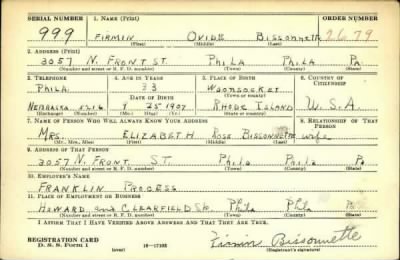 SERIAL NUMBER 1. NAME (Print) ORDER NUMBER
999 FIRMIN OVIDE BISSONNETTE 2679
(First) (Middle) (Last)
2. ADDRESS (Print)
3057 N. FRONT ST. PHILA PHILA PA
(Number and street or R. F. D. number) (Town) (County) (State)
3. TELEPHONE 4. AGE IN YEARS 5. PLACE OF BIRTH 6. COUNTRY OF CITIZENSHIP
PHILA. 33 WOONSOCKET
DATE OF BIRTH (Town or county)
NEBRASKA 5716 9 25 1907 RHODE ISLAND U.S.A.
(Exchange) (Number) (Mo.) (Day) (Yr.) (State or country)
7. NAME OF PERSON WHO WILL ALWAYS KNOW YOUR ADDRESS 8. RELATIONSHIP OF THAT PERSON
MRS. ELIZABETH ROSE BISSONNETTE wife
(Mr., Mrs., Miss) (First) (Middle) (Last)
9. ADDRESS OF THAT PERSON
3057 N. FRONT. ST. Phila Phila Pa
(Number and street or R. F. D. number) (Town) (County) (State)
10. EMPLOYER'S NAME
FRANKLIN PROCESS
11. PLACE OF EMPLOYMENT OR BUSINESS
HOWARD and CLEARFIELD Sts Phila Phila Pa
(Number and street or R. F. D. number) (Town) (County) (State)
I AFFIRM THAT I HAVE VERIFIED ABOVE ANSWERS AND THAT THEY ARE TRUE.
REGISTRATION CARD
D. S. S. Form 1 (over) 16-17105 Firmin Bissonnette
(Registrant's signature)